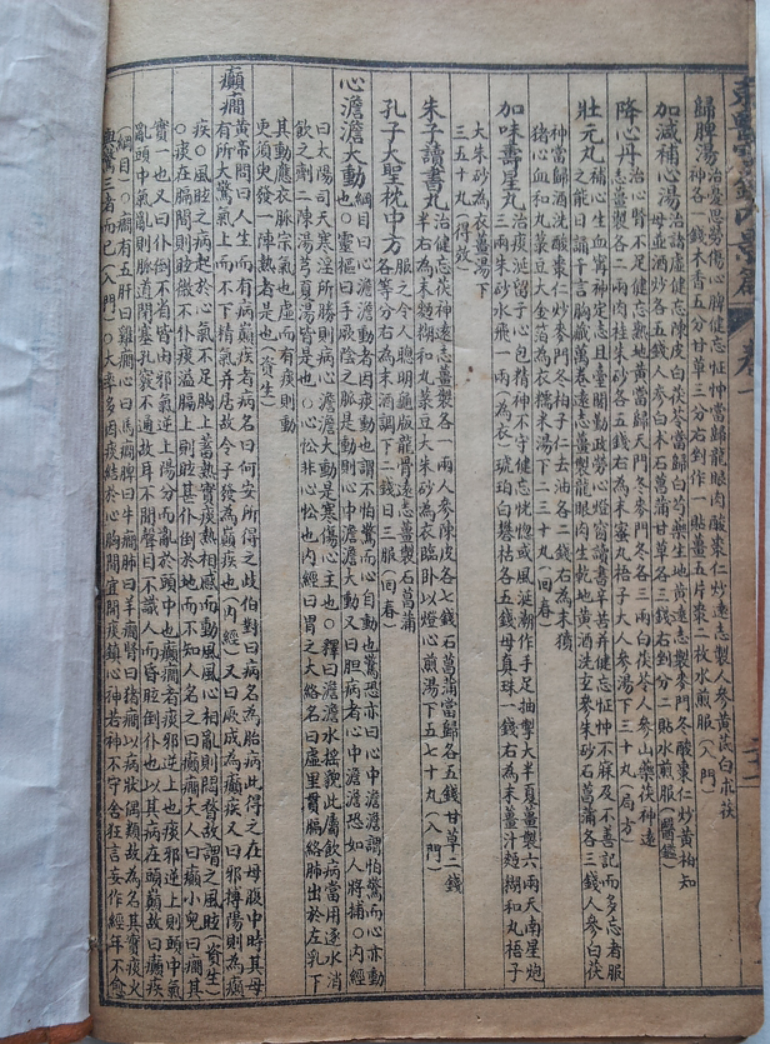 東醫寶鑑內景篇 卷一
歸脾湯治憂思勞傷心脾健忘怔忡當歸龍眼肉酸棗仁炒遠志製人參黃芪白朮茯
神各一錢木香五分甘草三分右剉作一貼薑五片棗二枚水煎服(入門)
加減補心湯治諸虛健忘陳皮白茯苓當歸白芍藥生地黃遠志製麥門冬酸棗仁炒黃柏知
母並酒炒各五錢人參白朮石菖蒲甘草各三錢右剉分二貼水煎服(醫鑑)
降心丹治心腎不足健忘熟地黃當歸天門冬麥門冬各三兩白茯苓人參山藥茯神遠
志薑製各二兩肉桂朱砂各五錢右為末蜜丸梧子大人參湯下三十丸(局方)
壯元丸補心生血甯神定志且臺閣勤政勞心燈窗讀書辛苦并健忘怔忡不寐及不善記而多忘者服
之能日誦千言胸藏萬卷遠志薑製龍眼肉生乾地黃酒洗玄參朱砂石菖蒲各三錢人參白茯
神當歸酒洗酸棗仁炒麥門冬柏子仁去油各二錢右為末豮
猪心血和丸菉豆大金箔為衣糯米湯下二三十丸(回春)
加味壽星丸治痰涎留子心包精神不守健忘恍惚或風涎潮作手足抽掣大半夏薑製六兩天南星炮
三兩朱砂水飛一兩(為衣)琥珀白礬枯各五錢母真珠一錢右為末薑汁麵糊和丸梧子
大朱砂為衣薑湯下
三五十丸(得效)
朱子讀書丸治健忘茯神遠志薑製各一兩人參陳皮各七錢石菖蒲當歸各五錢甘草二錢
半右為末麵糊和丸菉豆大朱砂為衣臨卧以燈心煎湯下五七十丸(入門)
孔子大聖枕中方服之令人聰明龜版龍骨遠志薑製石菖蒲
各等分右為末酒調下二錢日三服(回春)
心澹澹大動綱目曰心澹澹動者因痰動也謂不怕驚而心自動也驚恐亦曰心中澹澹謂怕驚而心亦動
也○靈樞曰手厥陰之脈是動則心中澹澹大動又曰胆病者心中澹澹恐如人將捕○內經
曰太陽司天寒淫所勝則病心澹澹大動是寒傷心主也○釋曰澹澹水搖貌此属飲病當用逐水消
飲之劑二陳湯芎夏湯皆是也○心忪非心忪也內經曰胃之大絡名曰虛里貫膈絡肺出於左乳下
其動應衣脉宗氣也虛而有痰則動
更須臾發一陣熱者是也(資生)
癲癎黃帝問曰人生而有病巔疾者病名曰何安所得之歧伯對曰病名為胎病此得之在母腹中時其母
有所大驚氣上而不下精氣并居故令子發為巔疾也(內經)又曰厥成為癲疾又曰邪搏陽則為癲
疾○風眩之病起於心氣不足胸上蓄熱實痰熱相感而動風風心相亂則悶瞀故謂之風眩(資生)
○痰在膈間則眩微不仆痰溢膈上則眩甚仆倒於地而不知人名之曰癲癎大人曰癲小兒曰癎其
實一也又曰仆倒不省皆由邪氣逆上陽分而亂於頭中也癲癎者痰邪逆上也痰邪逆上則頭中氣
亂頭中氣亂則脉道閉塞孔竅不通故耳不聞聲目不識人而昏眩倒仆也以其病在頭巔故曰癲疾
(綱目)○癎有五肝曰雞癎心曰馬癎脾曰牛癎肺曰羊癎腎曰猪癎以病狀偶類故為名其實痰火
與驚三者而已(入門)○大率多因痰結於心胸間宜開痰鎮心神若神不守舍狂言妄作經年不愈